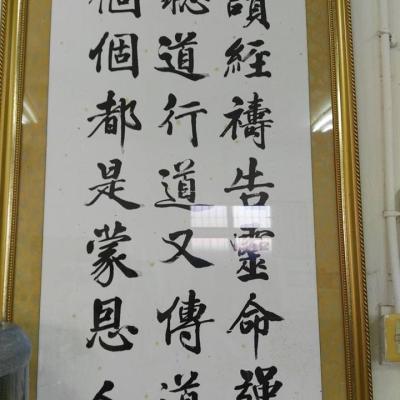 讀經禱告靈命強
聽道行道又傳道
個個都是蒙恩人